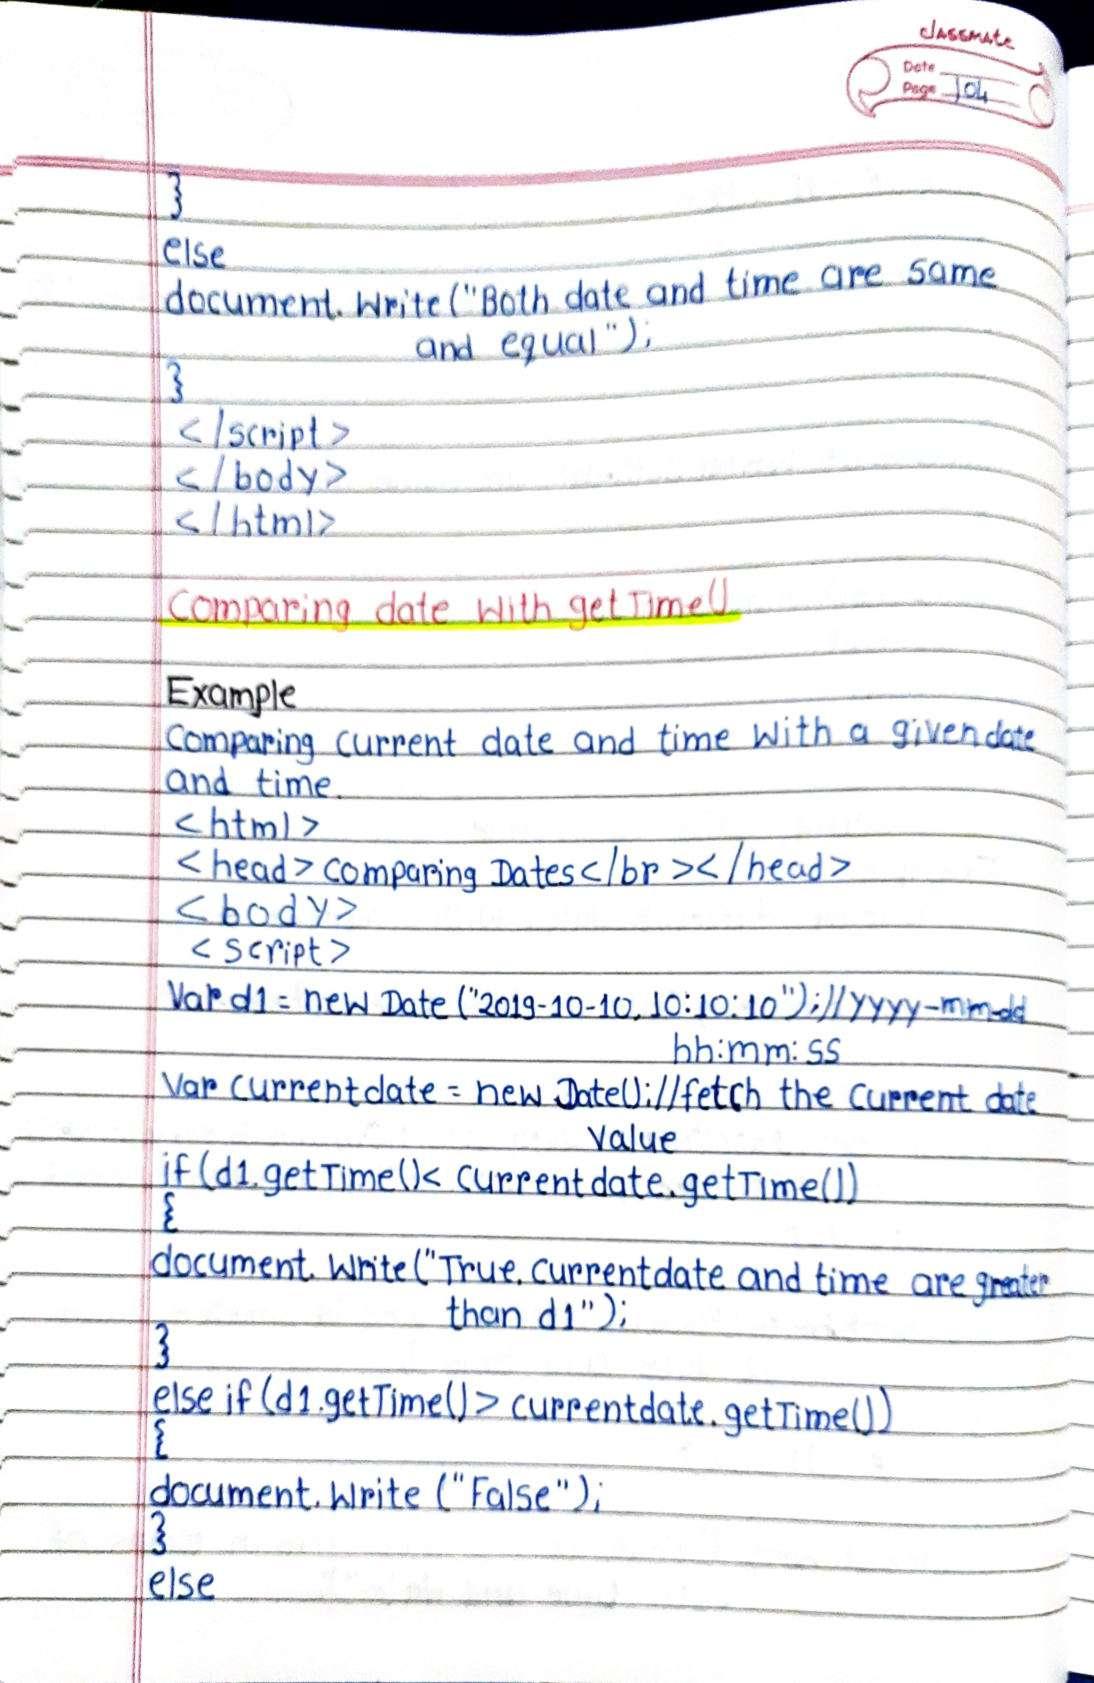 classmate
Date
Page 104
}
else
document.write("Both date and time are same
and equal");
}
</script>
</body>
</html>
Comparing date with getTime()
Example
Comparing current date and time with a given date
and time.
<html>
<head>comparing Dates</br></head>
<body>
<script>
Var d1 = new Date("2019-10-10, 10:10:10");//yyyy-mm-dd
hh:mm:ss
Var currentdate = new Date();//fetch the current date
value
if(d1.getTime()< currentdate.getTime())
{
document.write("True, currentdate and time are greater
than d1");
}
else if(d1.getTime()> currentdate.getTime())
{
document.write ("False");
}
else